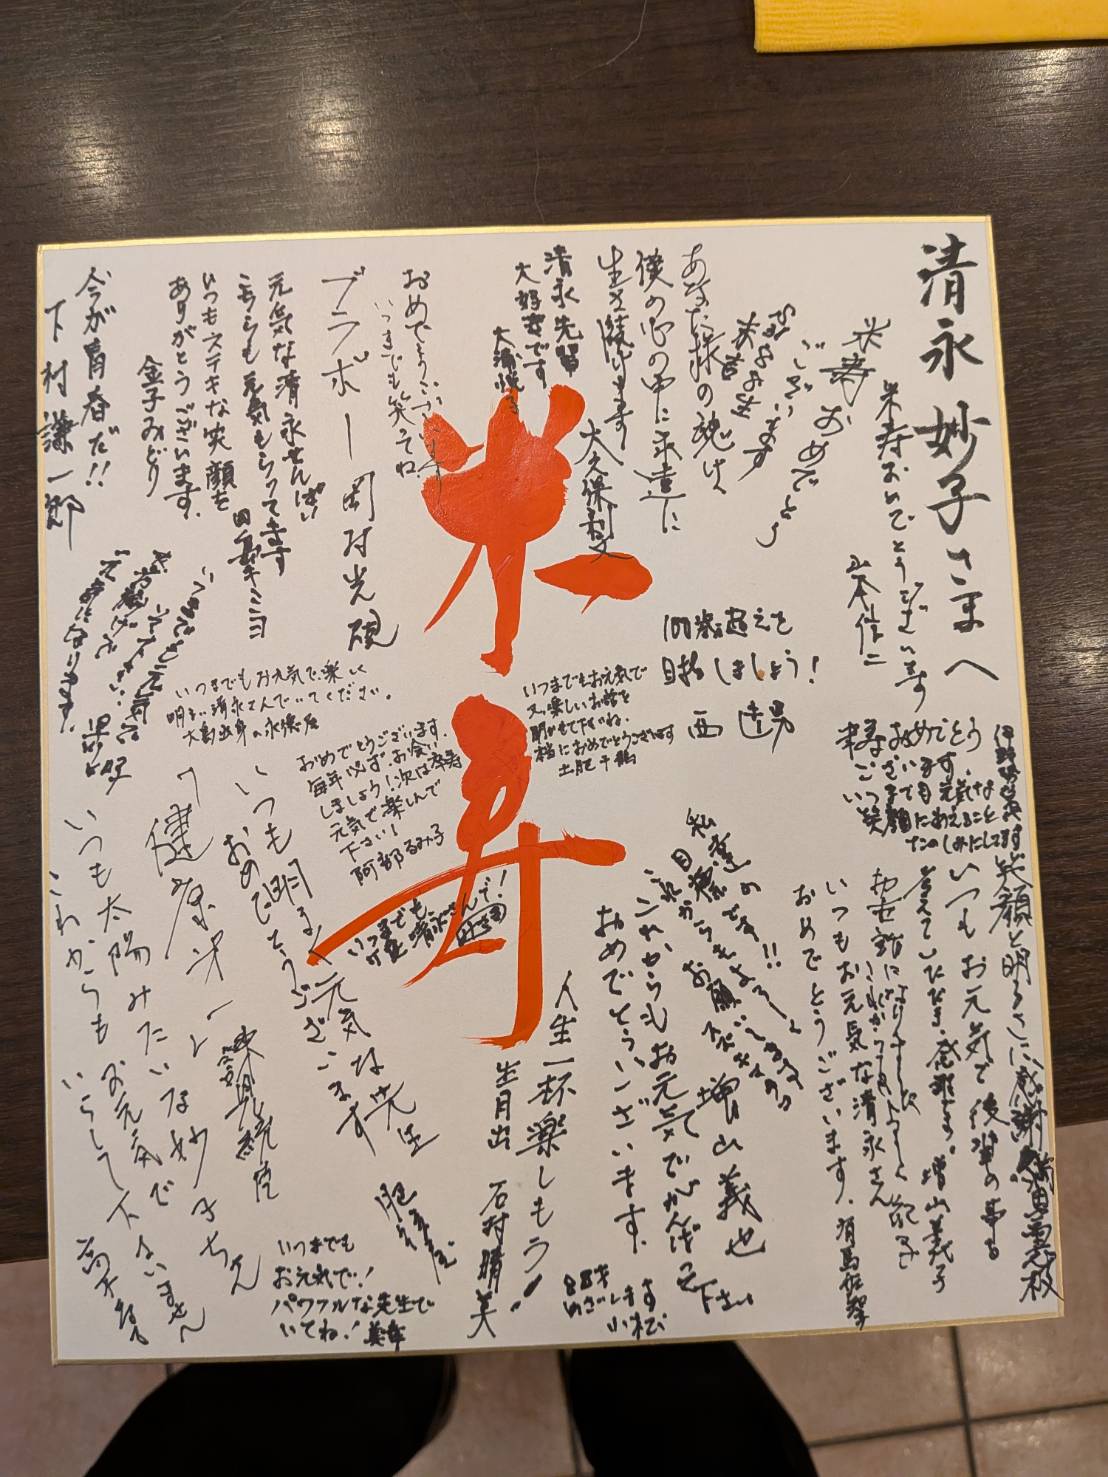 清永妙子さまへ
米寿おめでとう
ございます
米寿おめでとうございます
山本信二
あなた様の魂は
僕の心の中に永遠に
生き続けます
大久保
清永先輩
大好きです
米寿
おめでとうございます
いつまでも笑ってね
ブラボー 岡村光硯
元気な清永せんぱい
こちらも元気もらってます
いつもステキな笑顔を
ありがとうございます。
金子みどり
今が青春だ!!
下村謙一郎
100歳超えを
目指しましょう!
西 達男
いつまでもお元気で
又楽しいお話を
聞かせて下さいね。
本当におめでとうございます
土肥千鶴
いつまでもお元気で、楽しく
明るい清永さんでいてください。
おめでとうございます。
毎年必ず、お会い
しましょう!次は卒寿
元気で楽しんで
下さい!
阿部るみ子
いつまでも
清永さんで!
様おめでとう
ございます
いつまでも元気な
笑顔にあえること
たのしみにしてます
笑顔と明るさに感謝
いつもお元気で後輩の事を
支えていただき、感謝です。増山美子
いつもお元気な清永さん
おめでとうございます。
私達の
目標です!!
これからもよろしく
お願い致します
増山義也
これからもお元気でがんばって下さい
おめでとうございます。
人生一杯楽しもう!
石村晴美
88才
めざします
小松
いつも明るく元気な先生
おめでとうございます
「健康第一」
いつも太陽みたいな妙子ちゃん
これからもお元気で
いらして下さいませ
いつまでも
お元気で!
パワフルな先生で
いてね!